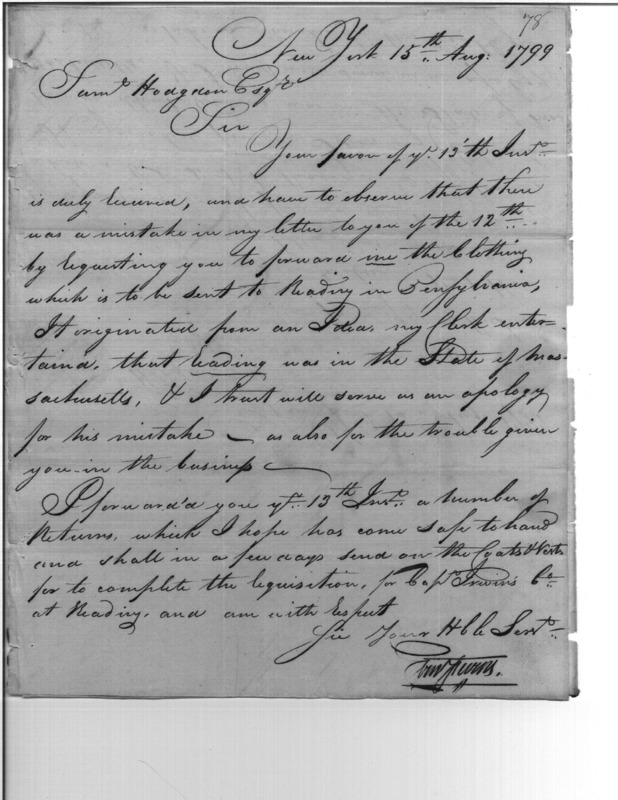 78
New York 15th Aug: 1799
Saml Hodgdon Esqr
Sir
Your favor of ye 13th Inst
is duly received, and have to observe that there
was a mistake in my letter to you of the 12th
by requesting you to forward me the Clothing
which is to be sent to Reading in Pensylvania,
It originated from an Idea, my Clerk enter-
taind, that reading was in the State of Mas-
sachusetts, & I trust will serve as an apology
for his mistake — as also for the trouble given
you in the business —
I forward'd you ye 13th Inst a number of
Returns, which I hope has come safe to hand
and shall in a few days send on the Coats & Vests
for to complete the requisition, for Capt Irwin's Co
at Reading, and am with Respect
Sir Your Hble Servt